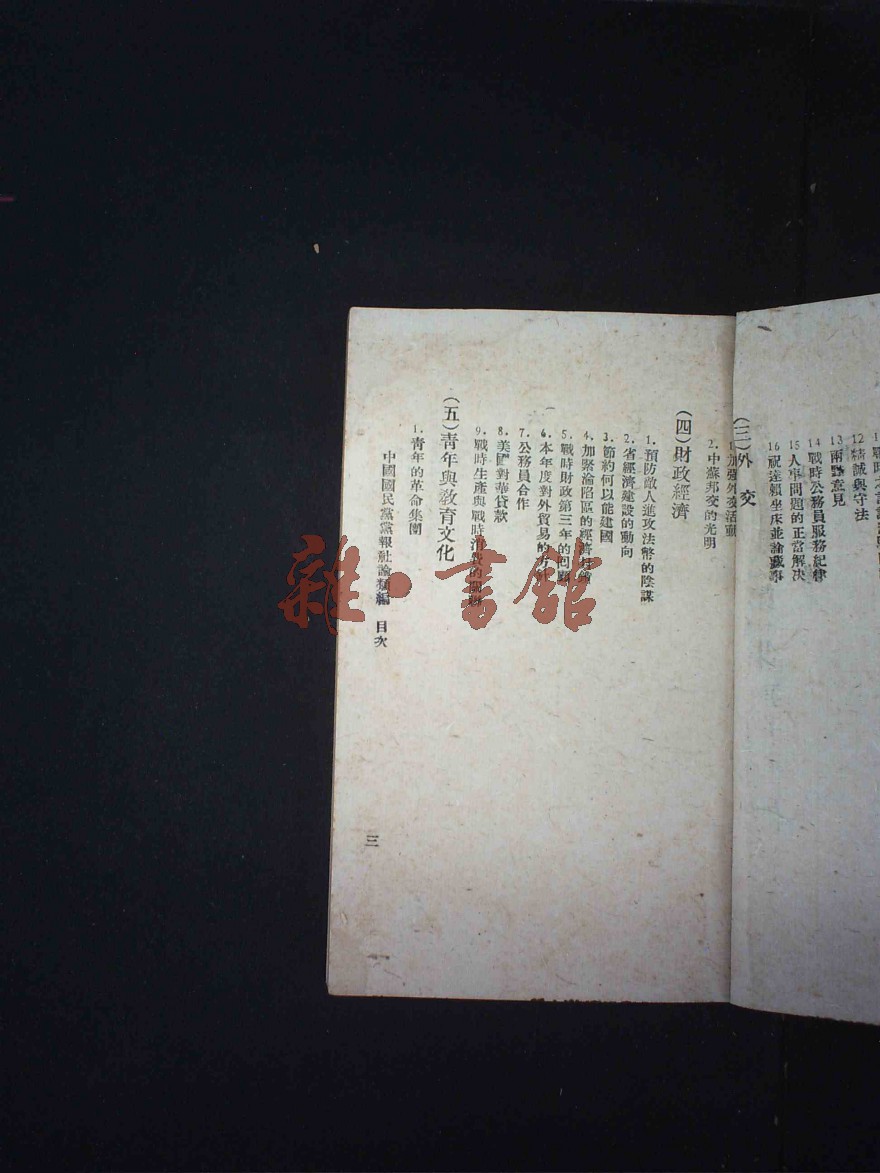 12 精誠與守法
13 兩點意見
14 戰時公務員服務紀律
15 人事問題的正當解决
16 祝達賴坐床並論藏事
(三)外 交
1. 加強外交活動
2. 中蘇邦交的光明
(四)財政經濟
1. 預防敵人進攻法幣的陰謀
2. 省經濟建設的動向
3. 節約何以能建國
4. 加緊淪陷區的經濟
5. 戰時財政第三年的回顧
6. 本年度對外貿易的
7. 公務員合作
8. 美國對華貸款
9. 戰時生產與戰時消費的關係
(五)青年與敎育文化
1. 青年的革命集團
中國國民黨黨報社論類編 目次
三
雜·書館